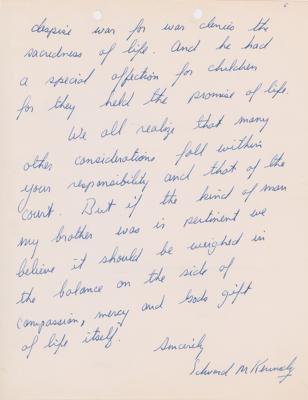 despise war for war denies the
sacredness of life. And he had
a special affection for children
for they held the promise of life.
We all realize that many
other considerations fall within
your responsibility and that of the
court. But if the kind of man
my brother was is pertinent we
believe it should be weighed in
the balance on the side of
compassion, mercy and Gods gift
of life itself.
Sincerely
Edward M Kennedy